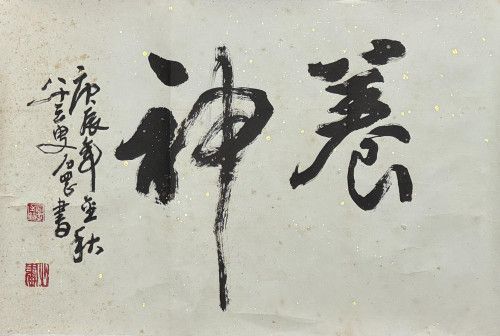 養神
庚辰年金秋
八十三叟石書